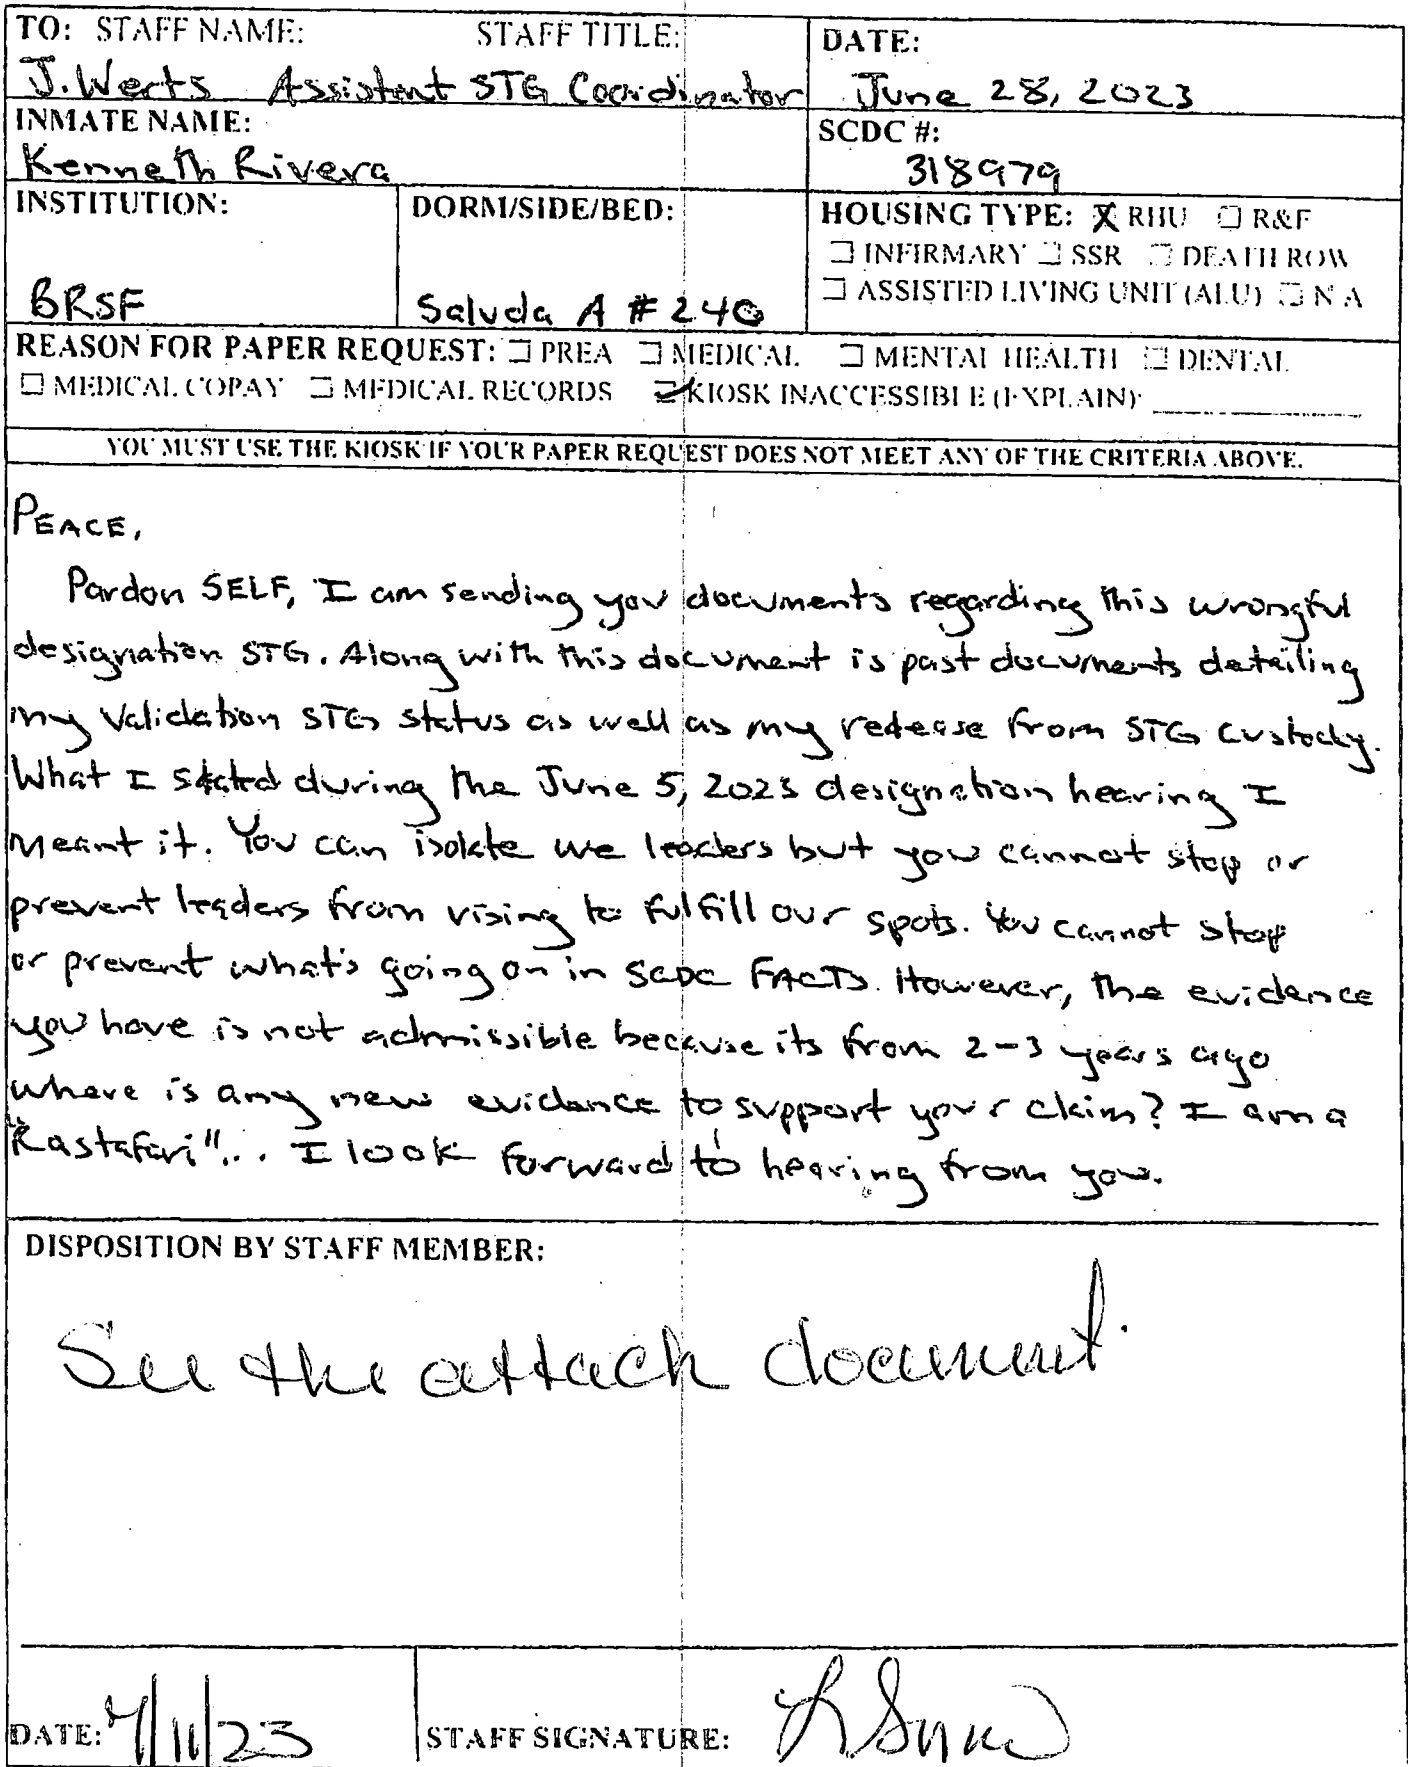 TO: STAFF NAME: STAFF TITLE: DATE:
J. Werts Assistant STG Coordinator June 28, 2023
INMATE NAME: SCDC #:
Kenneth Rivera 318979
INSTITUTION: DORM/SIDE/BED: HOUSING TYPE: X RHU ☐ R&F
☐ INFIRMARY ☐ SSR ☐ DEATH ROW
☐ ASSISTED LIVING UNIT (ALU) ☐ N A
BRSF Saluda A # 240
REASON FOR PAPER REQUEST: ☐ PREA ☐ MEDICAL ☐ MENTAL HEALTH ☐ DENTAL
☐ MEDICAL COPAY ☐ MEDICAL RECORDS ☑ KIOSK INACCESSIBLE (EXPLAIN):
YOU MUST USE THE KIOSK IF YOUR PAPER REQUEST DOES NOT MEET ANY OF THE CRITERIA ABOVE.
PEACE,
Pardon SELF, I am sending you documents regarding this wrongful
designation STG. Along with this document is past documents detailing
my Validation STG status as well as my release from STG custody.
What I stated during the June 5, 2023 designation hearing I
meant it. You can isolate we leaders but you cannot stop or
prevent leaders from rising to fulfill our spots. You cannot stop
or prevent what's going on in SCDC FACTS. However, the evidence
you have is not admissible because its from 2-3 years ago
where is any new evidence to support your claim? I am a
"Rastafari"... I look forward to hearing from you.
DISPOSITION BY STAFF MEMBER:
See the attach document.
DATE: 7/11/23 STAFF SIGNATURE: